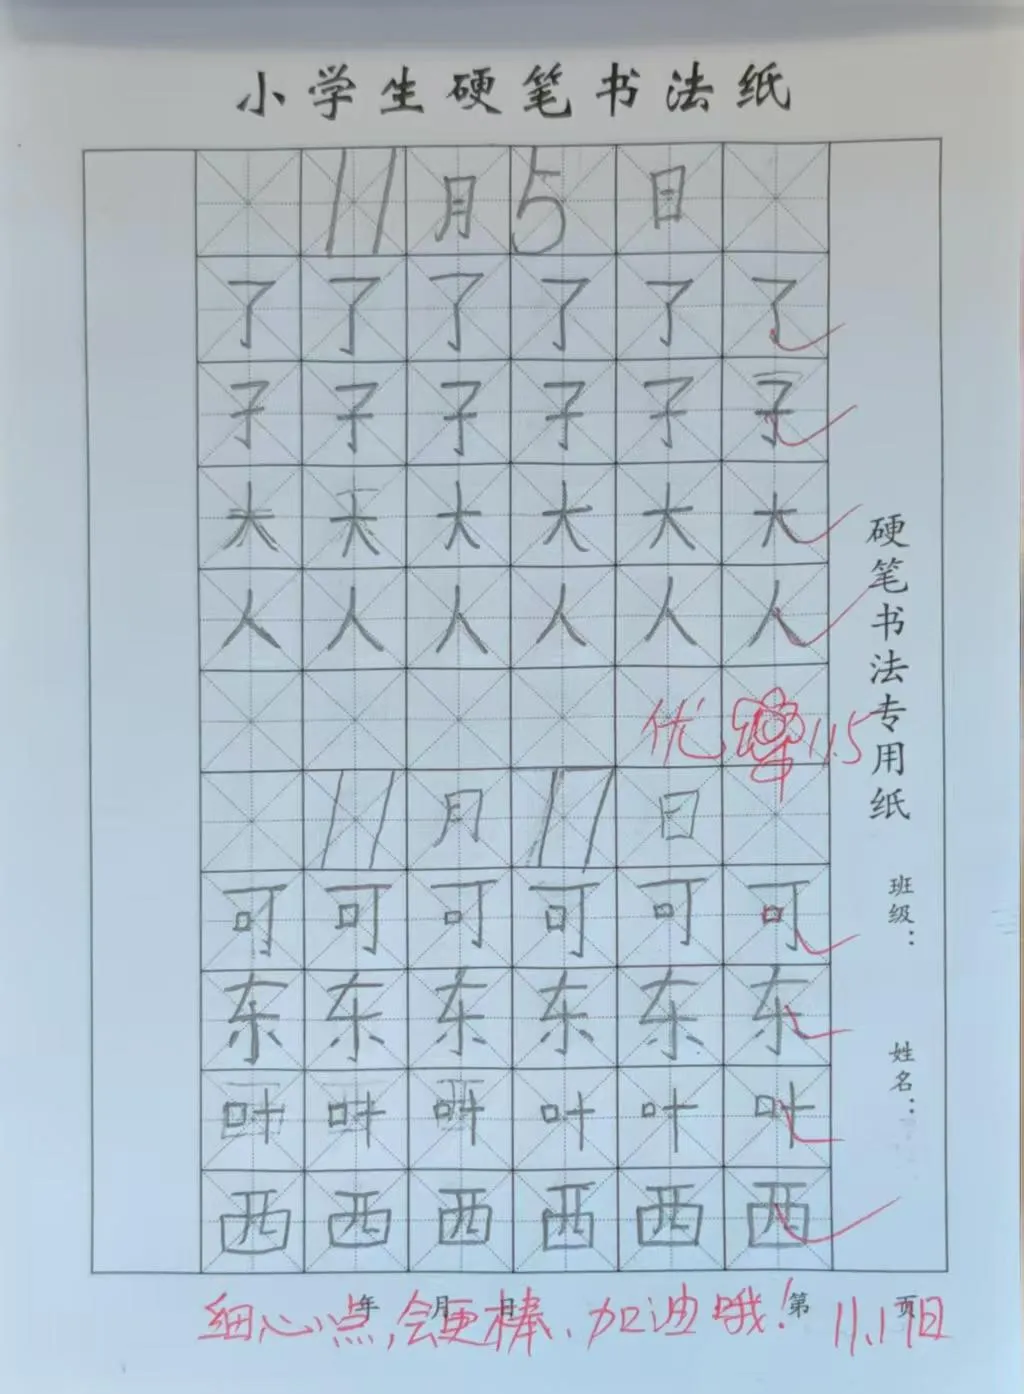 小学生硬笔书法纸
11月5日
了了了了了了
子子子子子子
大大大大大大
人人人人人人
优 11.5
11月17日
可可可可可可
东东东东东东
叶叶叶叶叶叶
西西西西西西
硬笔书法专用纸
班级：
姓名：
年 月 日 第 页
细心点,会更棒、加油哦!
11.17日